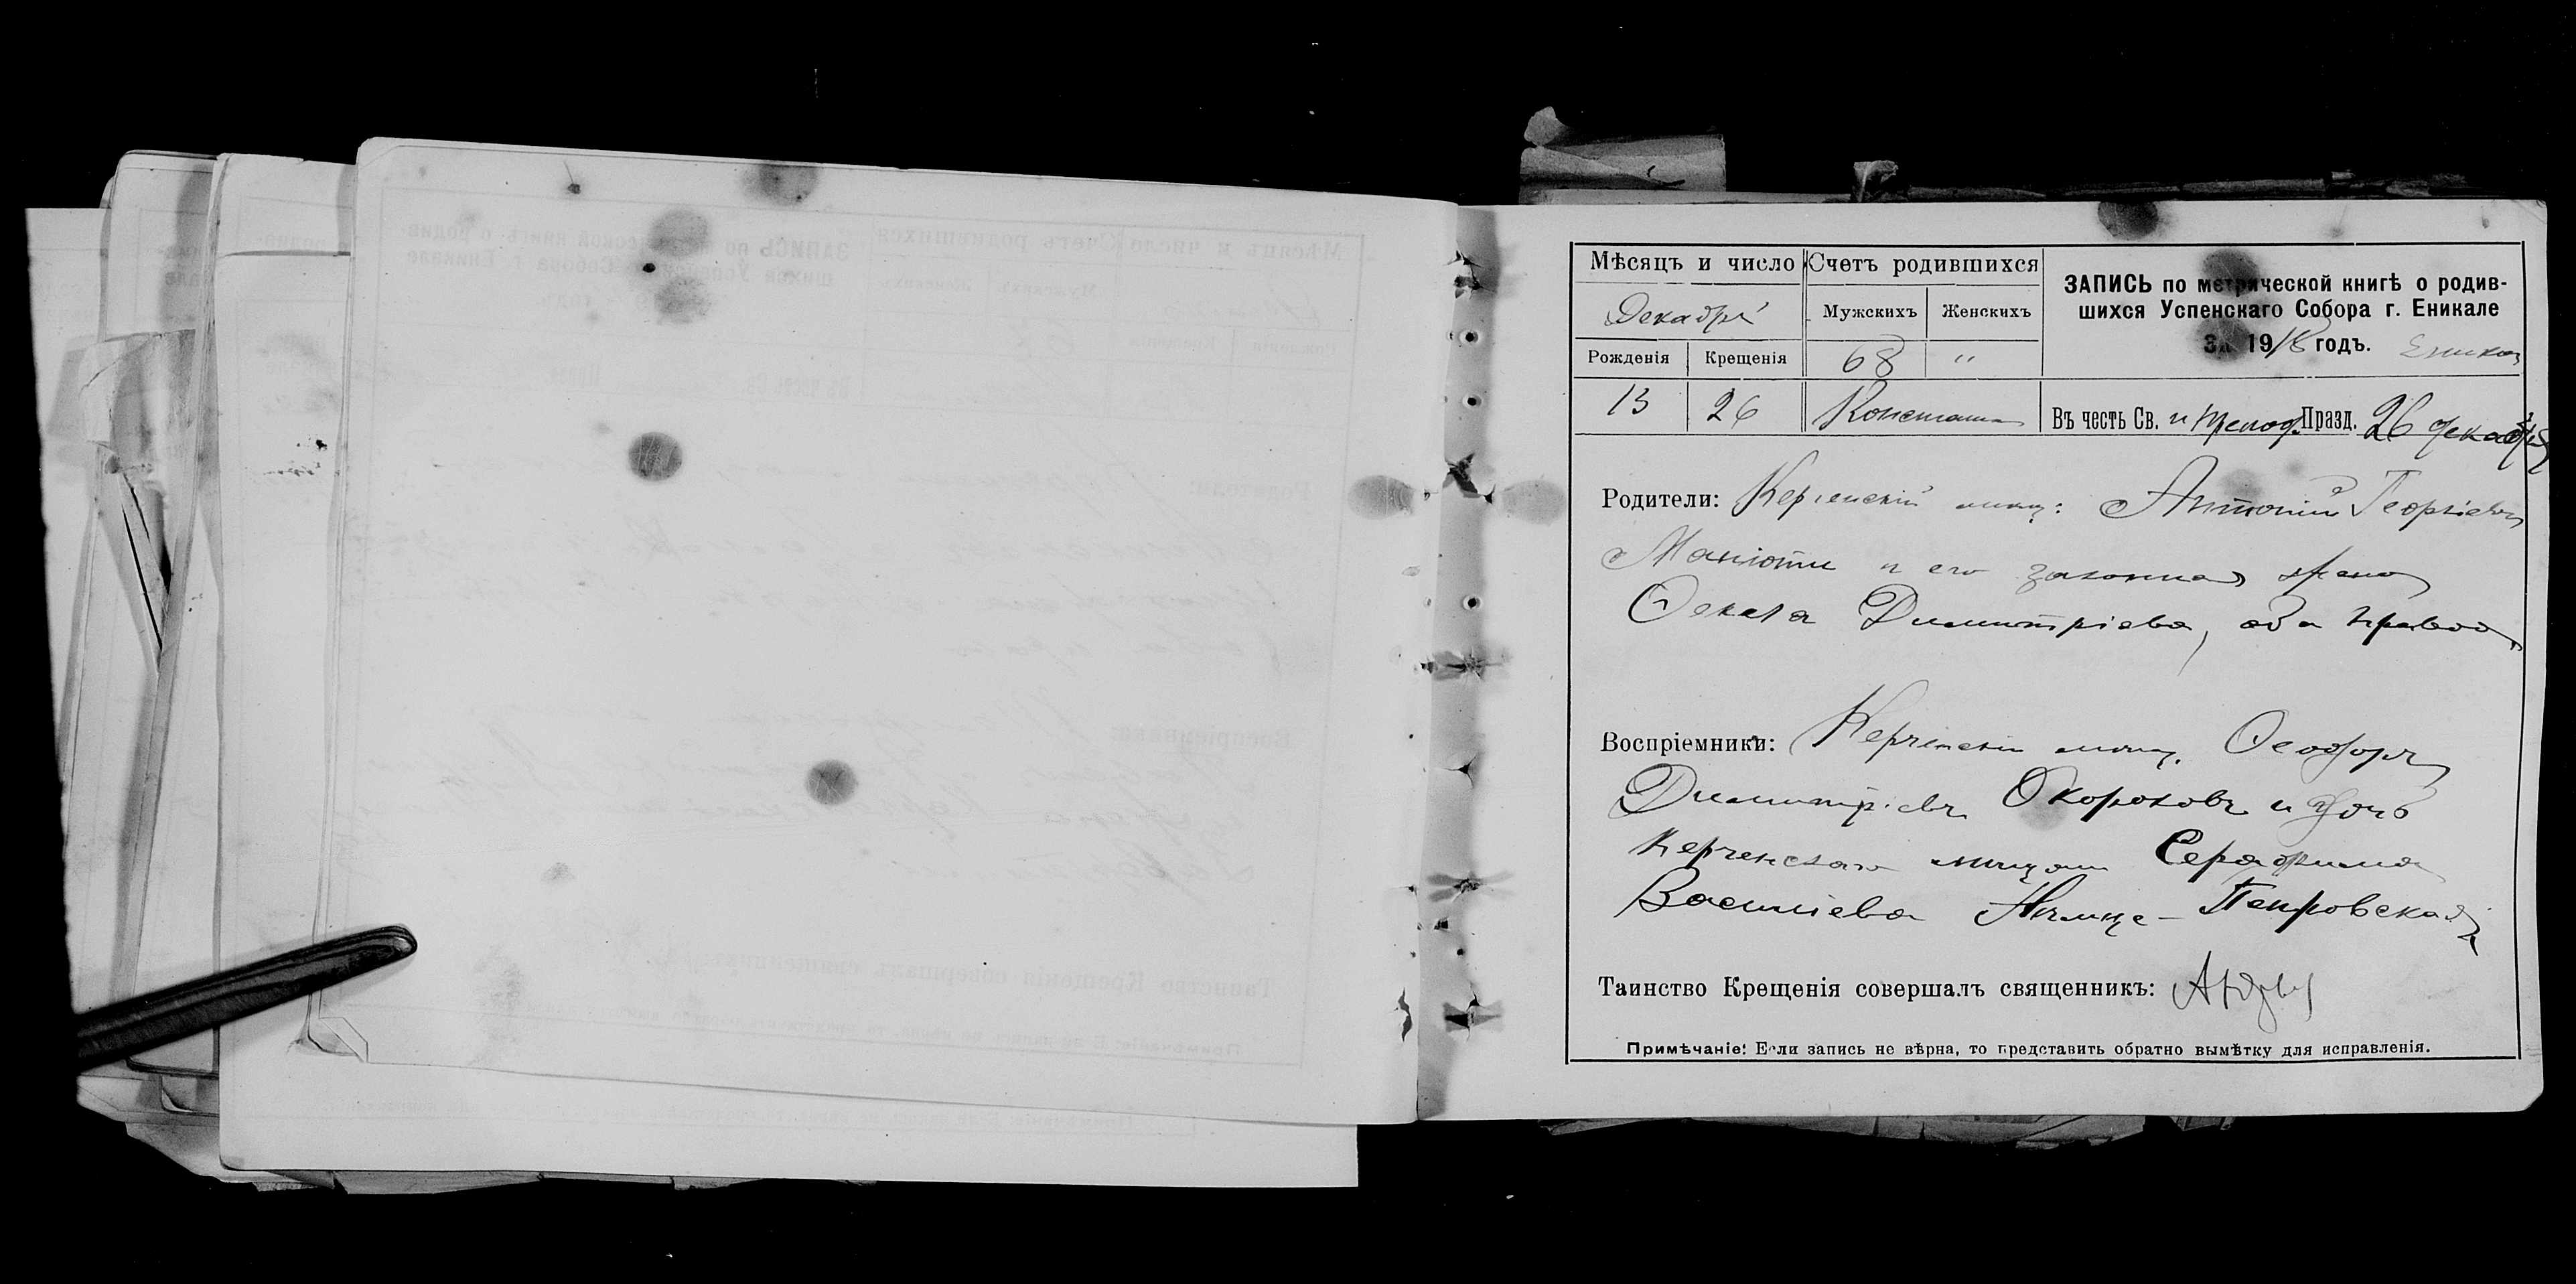 Мѣсяцъ и число
Счетъ родившихся
Декабрь
Мужскихъ
Женскихъ
Рожденія
Крещенія
68
"
ЗАПИСЬ по метрической книгѣ о родив-
шихся Успенскаго Собора г. Еникале
За 1918 годъ.
13
26
Въ честь Св. и препод. Празд. 26 декабря
Родители: Керченскій мѣщ: Антоній Георгіевъ
и его законная жена
Димитріева, оба правос
Воспріемники: Керченскій мѣщ. Ѳеодоръ
Димитріевъ Окороковъ и дочь
Керченскаго мѣщан Серафима
Василіева Петровская
Таинство Крещенія совершалъ священникъ:
Примѣчаніе: Если запись не вѣрна, то представить обратно вымѣтку для исправленія.